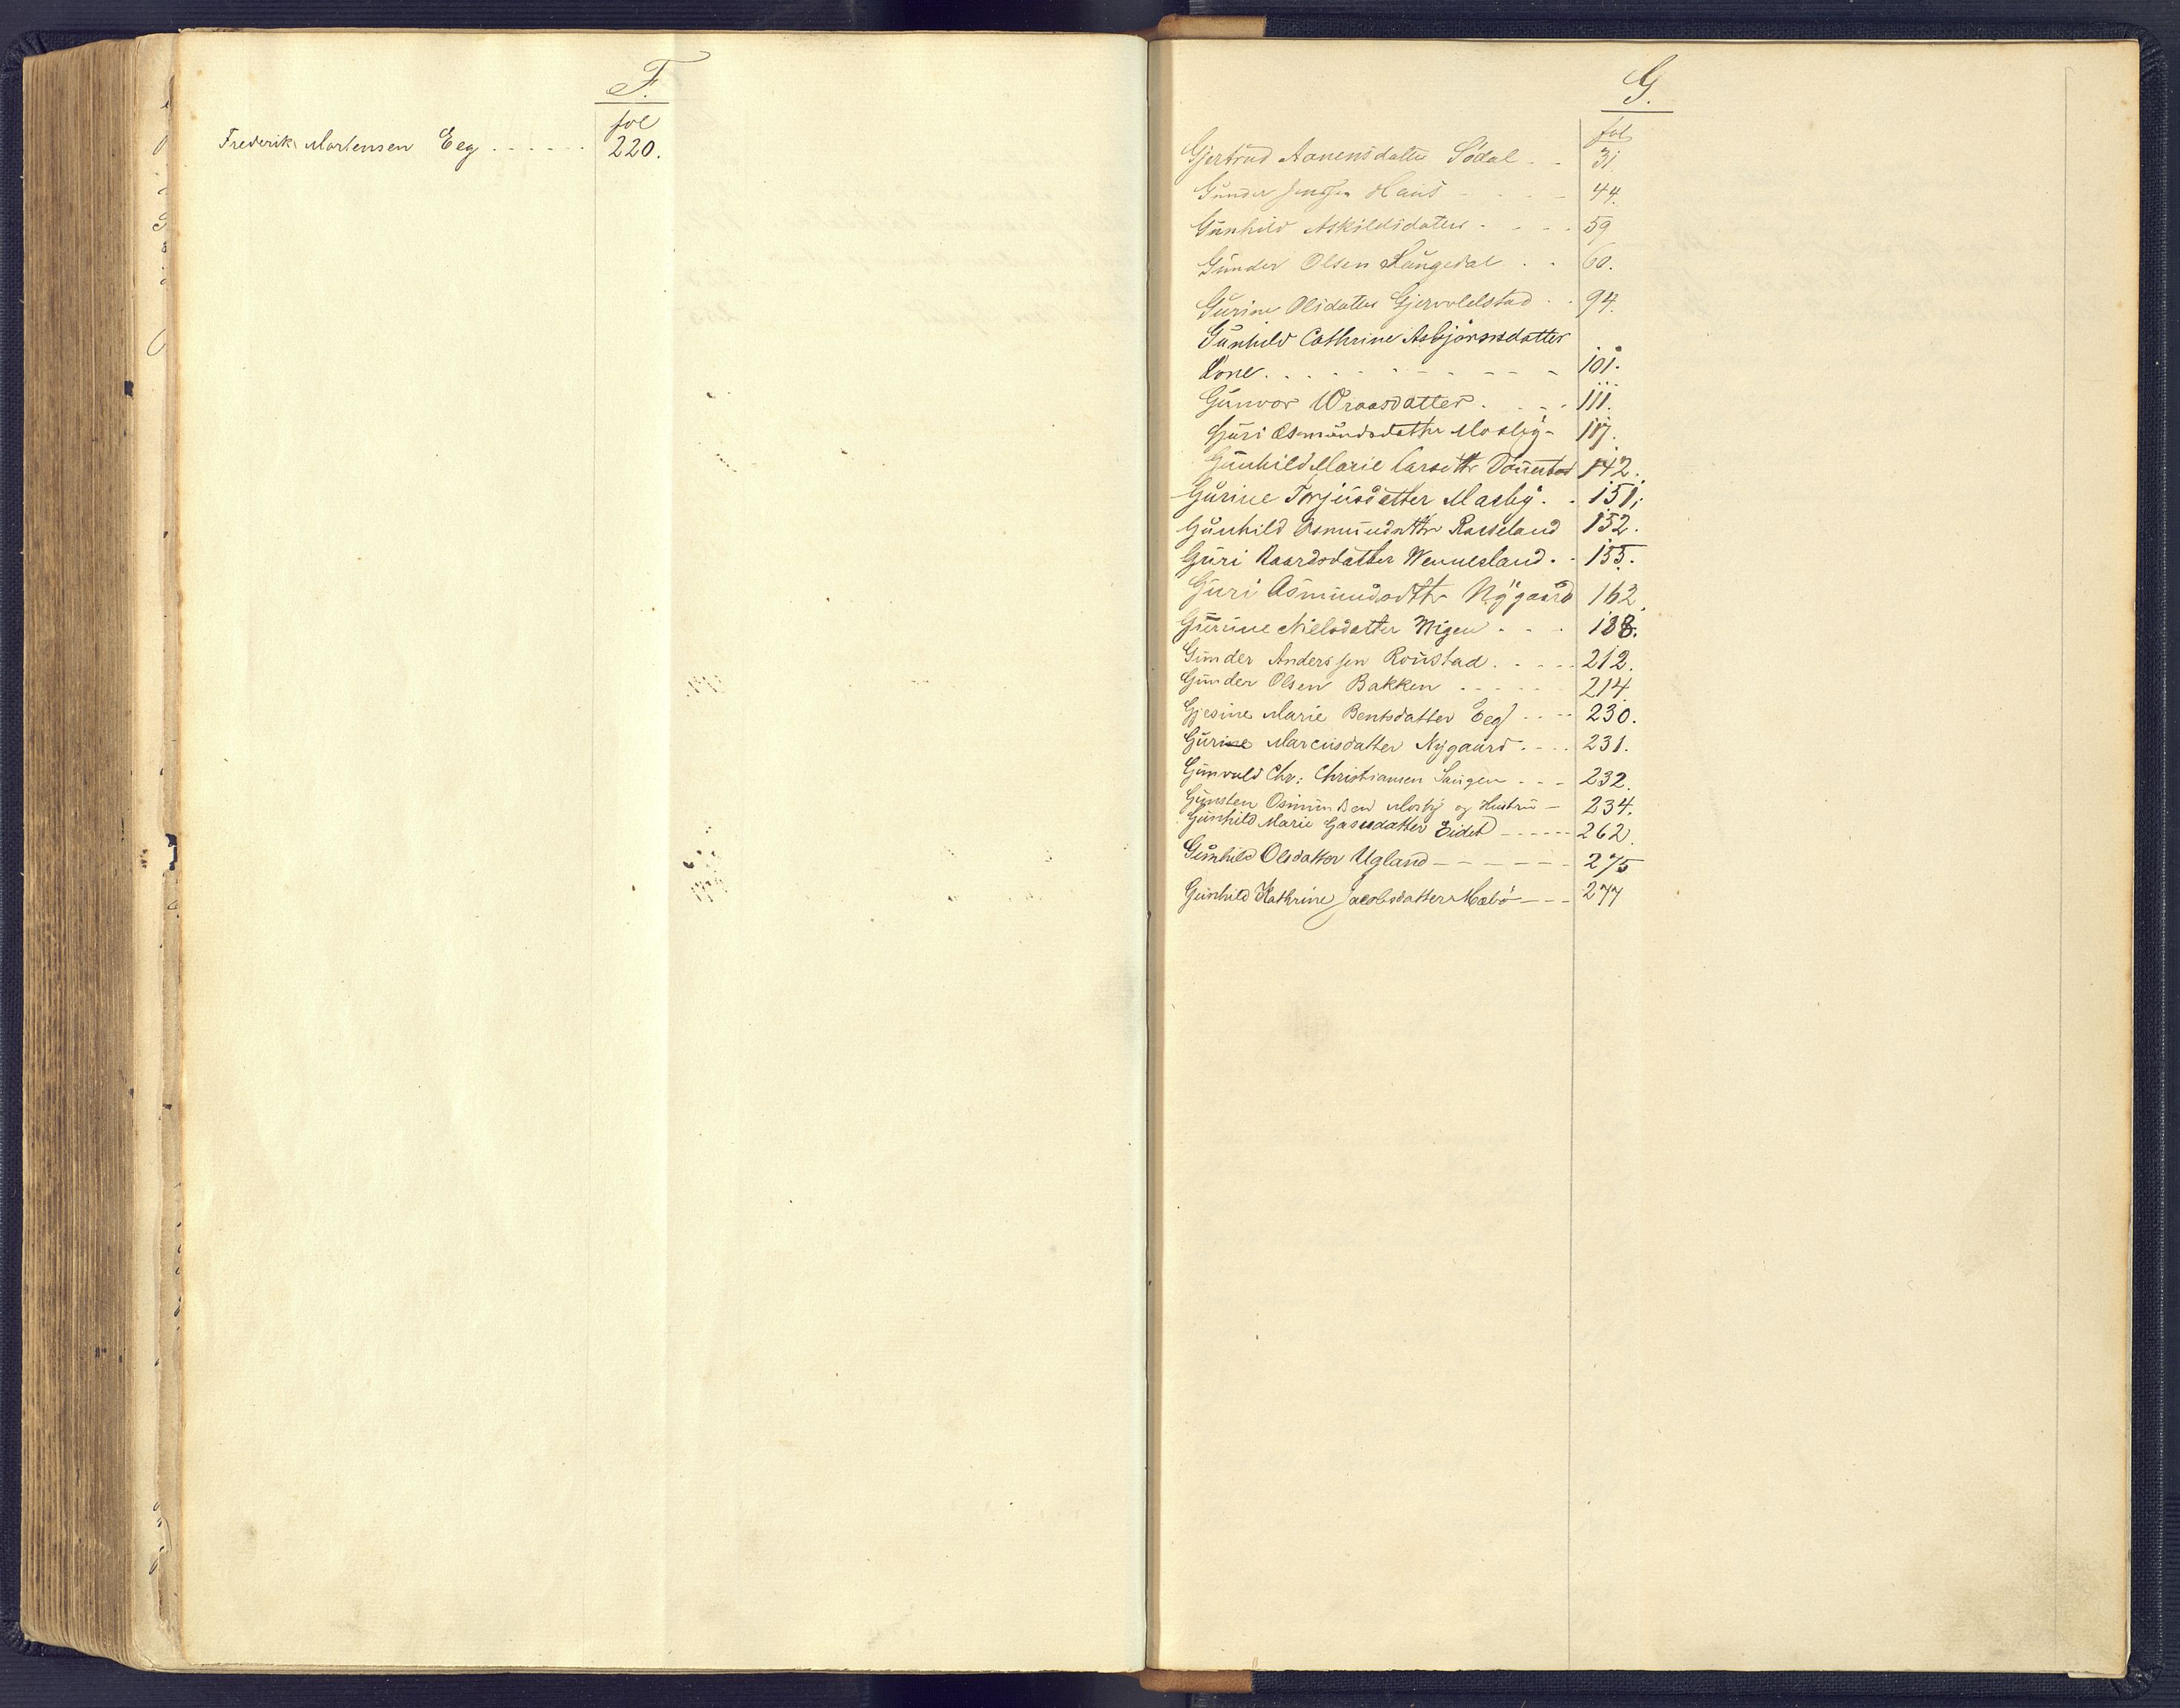 F.
fol
Frederik Martensen Eeg . . . . . . 220.
G.
fol
Gjertrud Aanensdatter Södal . . 31.
Gunder Jenssen Haus - - - - 44.
Gunhild Askildsdatter . . . . 59
Gunder Olsen Langedal . . 60.
Gurine Olsdatter Gjervoldstad . . 94.
Gunhild Cathrine Asbjörnsdatter
Lone . . . . . . - - - - 101.
Gunvor Wraasdatter . . - . 111.
Guri Osmundsdatter Mosby - 117.
Gunhild Marie Larsdttr Dönnestad 142.
Gurine Torjusdatter Mosby . . 151;
Gunhild Osmundsdttr Rosseland 152.
Guri Kaardsdatter Wennesland . . 155.
Guri Asmundsdttr Nygaard 162.
Gurine Nielsdatter Wigen . . . 188.
Gunder Anderssen Roustad . . - - - 212.
Gunder Olsen Bakken . . . . . 214.
Gjesine Marie Bentsdatter Eeg . . - - 230.
Gurine Marcusdatter Nygaard . - . . 231.
Gunvald Chr: Christiansen Saugen . - - 232.
Gunsten Osmundsen Mosby og Hustru - 234.
Gunhild Marie Gasusdatter Eidet - - - - - - 262.
Gunhild Olsdatter Ugland - - - - - - 275
Gunhild Kathrine Jacobsdatter Mæbö - - - 277